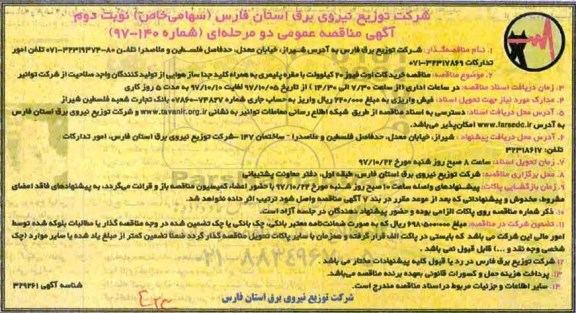 شرکت توزیع نیروی برق استان فارس (سهامی خاص) نوبت دوم
آگهی مناقصه عمومی دو مرحله‌ای (شماره ۱۴۰-۹۷)
۱. نام مناقصه‌گذار: شرکت توزیع برق فارس به آدرس شیراز، خیابان معدل، حدفاصل فلسطین و ملاصدرا تلفن ۸۰-۳۲۳۱۹۳۷۴-۰۷۱ تلفن امور
تدارکات ۳۲۳۱۷۸۶۹-۰۷۱
۲. موضوع مناقصه: مناقصه خرید کات اوت فیوز ۲۰ کیلوولت با مقره پلیمری به همراه کلید جدا ساز هوایی از تولیدکنندگان واجد صلاحیت از شرکت توانیر
۳. زمان دریافت اسناد مناقصه: در ساعات اداری (از ساعت ۷/۳۰ الی ۱۴/۳۰) از تاریخ ۹۷/۱۰/۰۵ لغایت ۹۷/۱۰/۱۰ به مدت ۵ روز کاری
۴. مدارک مورد نیاز جهت تحویل اسناد: فیش واریزی به مبلغ ۲۴۰/۰۰۰ ریال واریز به حساب جاری شماره ۷۴۸۳۷-۰۷۸۶۰ بانک تجارت شعبه فلسطین شیراز
۵. محل دریافت اسناد مناقصه: دسترسی به اسناد مناقصه از طریق شبکه اطلاع رسانی معاملات توانیر به نشانی www.tavanir.org.ir و شرکت توزیع نیروی برق استان فارس
به آدرس www.farsedc.ir امکان‌پذیر می‌باشد.
۶. آدرس محل دریافت پیشنهاد: شیراز، خیابان معدل، حدفاصل فلسطین و ملاصدرا - ساختمان ۱۴۷ - شرکت توزیع نیروی برق استان فارس، امور تدارکات
تلفن: ۳۲۳۱۸۶۱۷
۷. زمان تحویل اسناد: ساعت ۸ صبح روز شنبه مورخ ۹۷/۱۰/۲۲
۸. محل برگزاری مناقصه: شرکت توزیع نیروی برق استان فارس، طبقه اول، دفتر معاونت پشتیبانی
۹. زمان بازگشایی پاکات: پیشنهادهای واصله ساعت ۱۰ صبح روز شنبه مورخ ۹۷/۱۰/۲۲ با حضور اعضاء کمیسیون مناقصه باز و قرائت می‌گردد، به پیشنهادهای فاقد امضای
مشروط، مخدوش و پیشنهاداتی که بعد از موعد مقرر در بند ۷ آگهی مناقصه واصل شود ترتیب اثر داده نخواهد شد.
۱۰. ذکر شماره مناقصه روی پاکات الزامی بوده و حضور پیشنهاد دهندگان در جلسه آزاد است.
۱۱. تضمین شرکت در مناقصه: مبلغ ۶۹۸،۵۰۰،۰۰۰ ریال که به صورت ضمانت‌نامه معتبر بانکی، چک بانکی یا چک تضمین شده در وجه مناقصه گذار یا مطالبات بلوکه شده توسط
امور مالی این شرکت می باشد که بایستی در پاکت الف قرار گرفته و همزمان با سایر پاکات تحویل مناقصه گذار گردد ضمنا تضمین کمتر از مبلغ یاد شده یا سایر موارد (چک
شخصی وجه نقد و ...) قابل قبول نمی باشد.
۱۲. شرکت توزیع برق فارس در رد یا قبول کلیه پیشنهادات مختار می باشد
۱۳. پرداخت هزینه حمل و کسورات قانونی بعهده برنده مناقصه می‌باشد.
۱۴. سایر اطلاعات و جزئیات مربوط در اسناد مناقصه مندرج است.
شناسه آگهی ۳۲۹۲۶۱
شرکت توزیع نیروی برق استان فارس